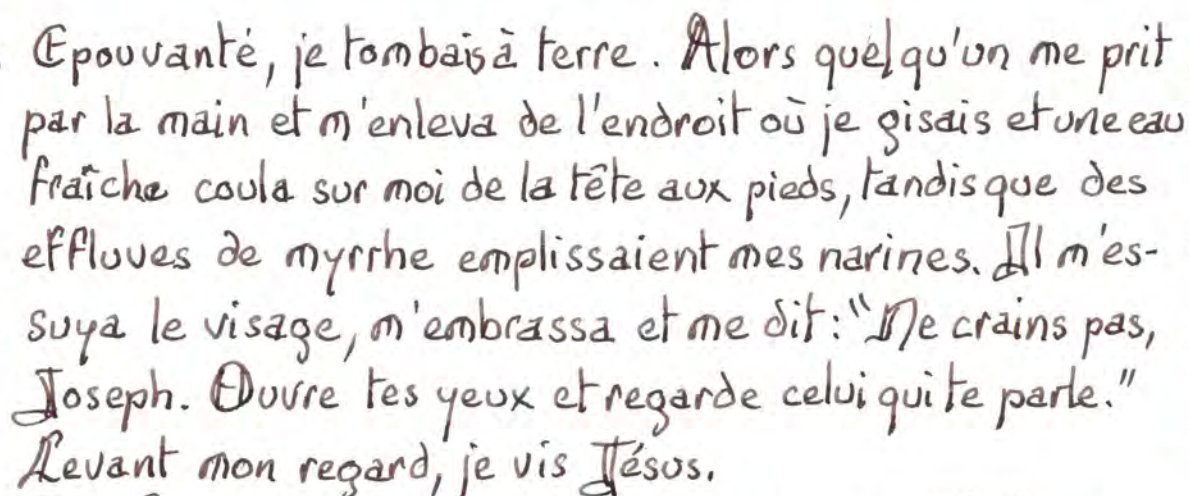 Epouvanté, je tombais à terre. Alors quelqu'un me prit
par la main et m'enleva de l'endroit où je gisais et une eau
fraîche coula sur moi de la tête aux pieds, tandis que des
effluves de myrrhe emplissaient mes narines. Il m'es-
suya le visage, m'embrassa et me dit : "Ne crains pas,
Joseph. Ouvre tes yeux et regarde celui qui te parle."
Levant mon regard, je vis Jésus.